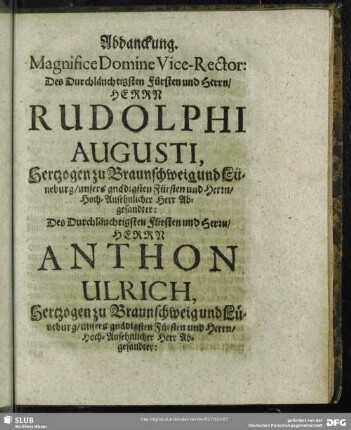 Abdanckung.
Magnifice Domine Vice-Rector:
Des Durchläuchtigsten Fürsten und Herrn/
HERRN
RUDOLPHI
AUGUSTI,
Hertzogen zu Braunschweig und Lü-
neburg/unsers gnädigsten Fürsten und Herrn/
Hoch-Ansehnlicher Herr Ab-
gesandter:
Des Durchläuchtigsten Fürsten und Herrn/
HERRN
ANTHON
ULRICH,
Hertzogen zu Braunschweig und Lü-
neburg/unsers gnädigsten Fürsten und Herrn/
Hoch-Ansehnlicher Herr Ab-
gesandter:
SLUB
Wir führen Wissen.
gefördert von der
Deutschen Forschungsgemeinschaft
DFG